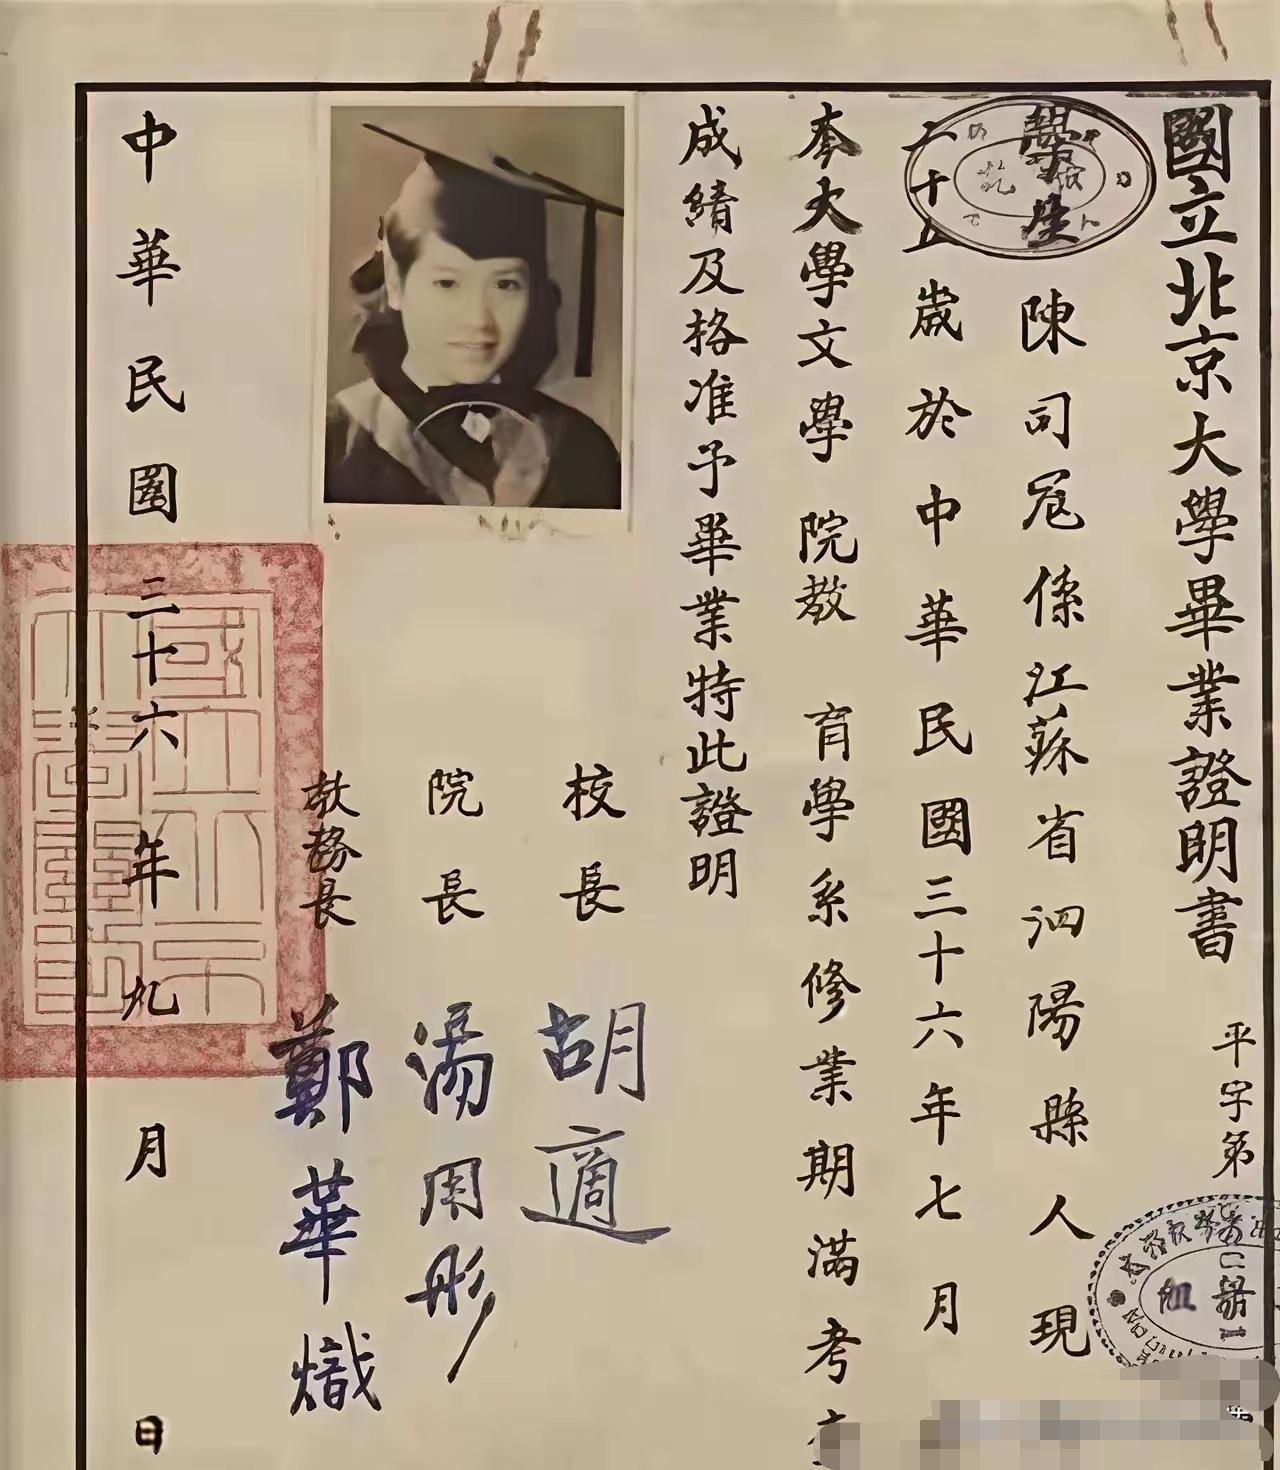 國立北京大學畢業證明書
平字第
學生
陳司冠係江蘇省泗陽縣人現
二十五歲於中華民國三十六年七月
本大學文學院教育學系修業期滿考查
成績及格准予畢業特此證明
校長 胡適
院長 湯用彤
教務長 鄭華熾
中華民國三十六年九月 日